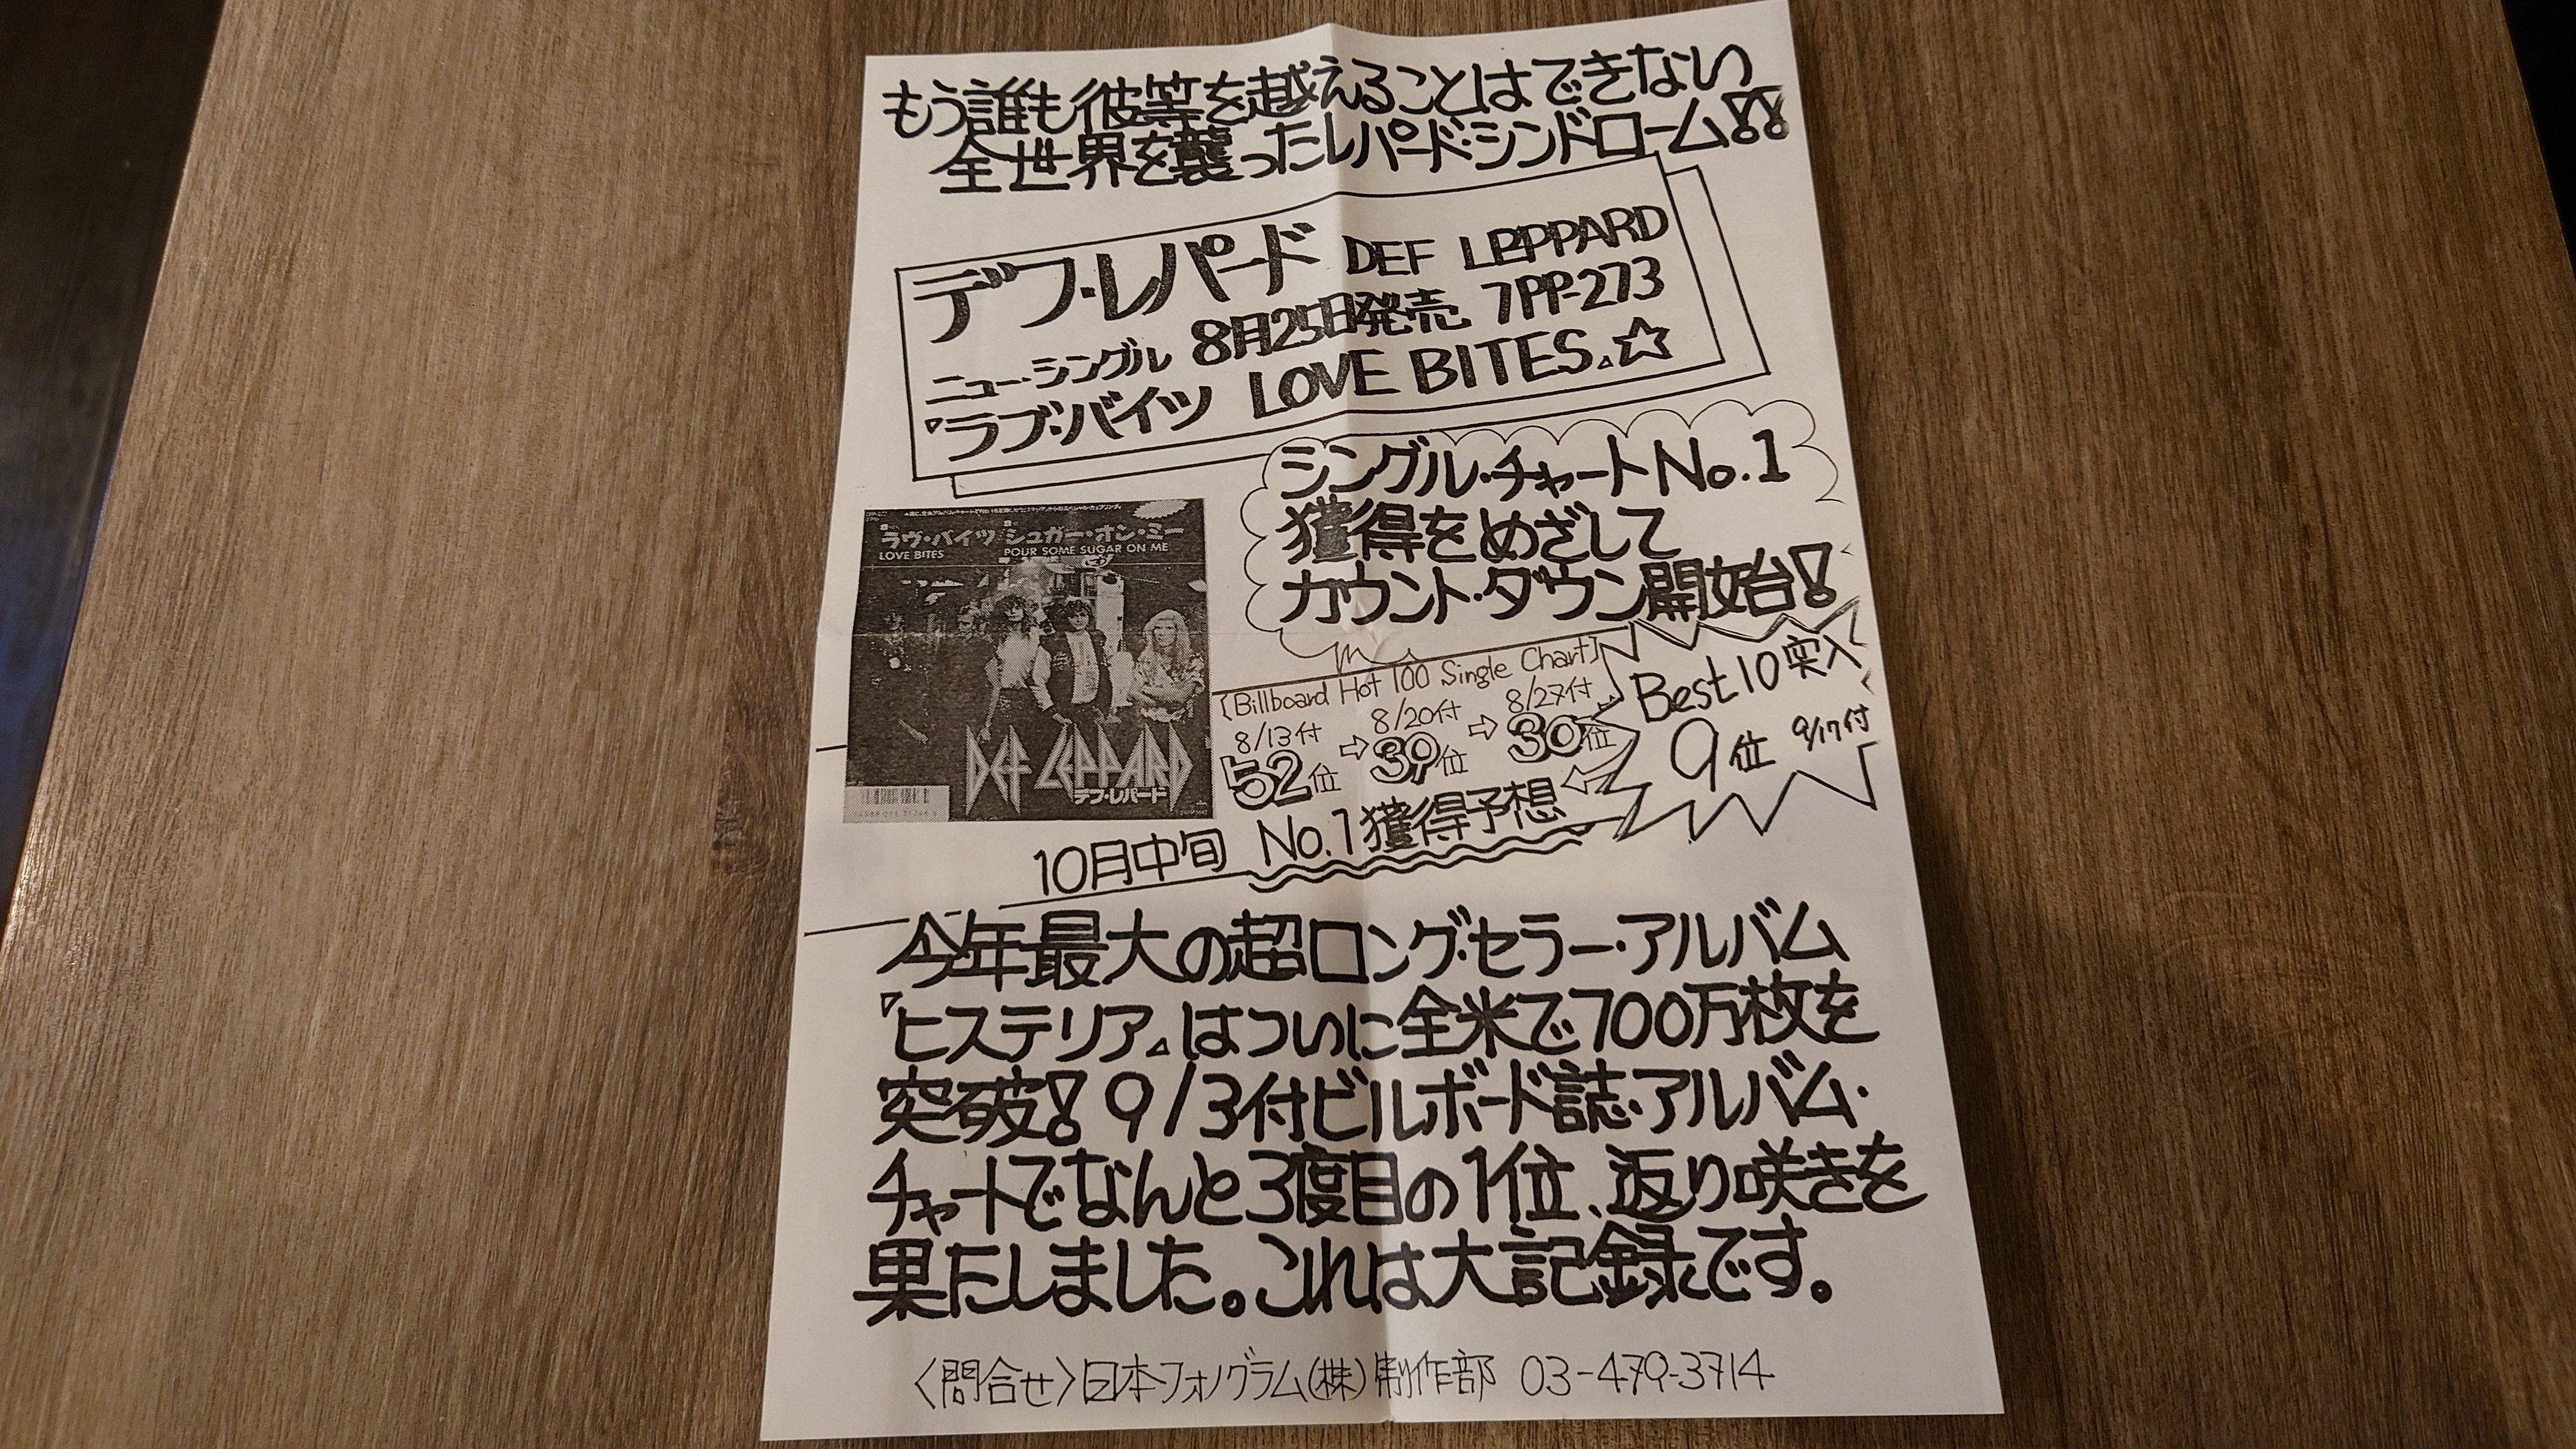 もう誰も彼等を越えることはできない
全世界を襲ったレパード・シンドローム!!
デフ・レパード DEF LEPPARD
ニュー・シングル 8月25日発売 7PP-273
『ラブ・バイツ LOVE BITES』☆
シングル・チャートNo.1
獲得をめざして
カウント・ダウン開始!
ラヴ・バイツ シュガー・オン・ミー
LOVE BITES POUR SOME SUGAR ON ME
DEF LEPPARD
デフ・レパード
[Billboard Hot 100 Single Chart]
8/13付 8/20付 8/27付
52位 ⇨ 39位 ⇨ 30位
Best10突入
9位 9/17付
10月中旬 No.1獲得予想
今年最大の超ロング・セラー・アルバム
『ヒステリア』はついに全米で700万枚を
突破! 9/3付ビルボード誌・アルバム・
チャートでなんと3度目の1位、返り咲きを
果たしました。これは大記録です。
〈問合せ〉日本フォノグラム(株)制作部 03-479-3714